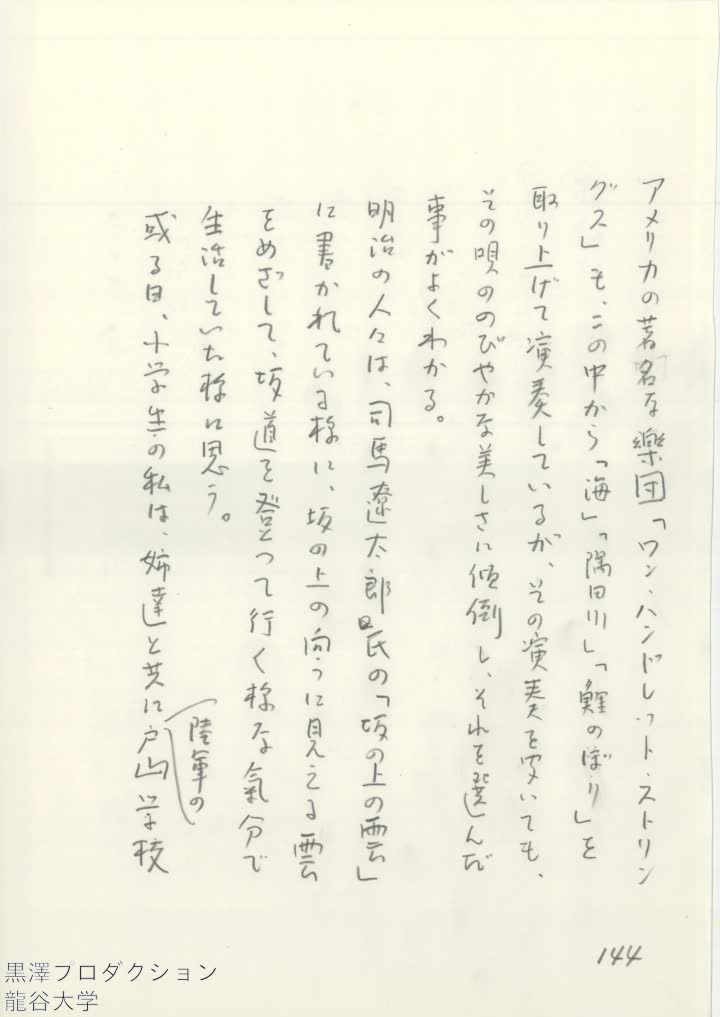 アメリカの著名な樂団「ワン・ハンドレット・ストリン
グス」も、この中から「海」「隅田川」「鯉のぼり」を
取り上げて演奏しているが、その演奏を聞いても、
その唄ののびやかな美しさに傾倒し、それを選んだ
事がよくわかる。
明治の人々は、司馬遼太郎氏の「坂の上の雲」
に書かれている様に、坂の上の向うに見える雲
をめざして、坂道を登って行く様な氣分で
生活していた様に思う。
或る日、小学生の私は、姉達と共に戸山学校
陸軍の
144
黒澤プロダクション
龍谷大学